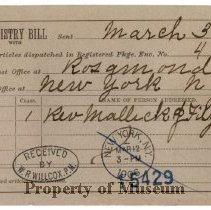 ISTRY BILL Sent March 3
WITH
articles dispatched in Registered Pkge. Env. No. 4
Post Office at Rosamond
Office at New York N
CLASS NAME OF PERSON ADDRESSED
1 Rev Mallick &
RECEIVED
BY
W.R. WILLCOX, P.M.
NEW YORK, N.Y.
MAR 12
3-PM
8429
Property of Museum